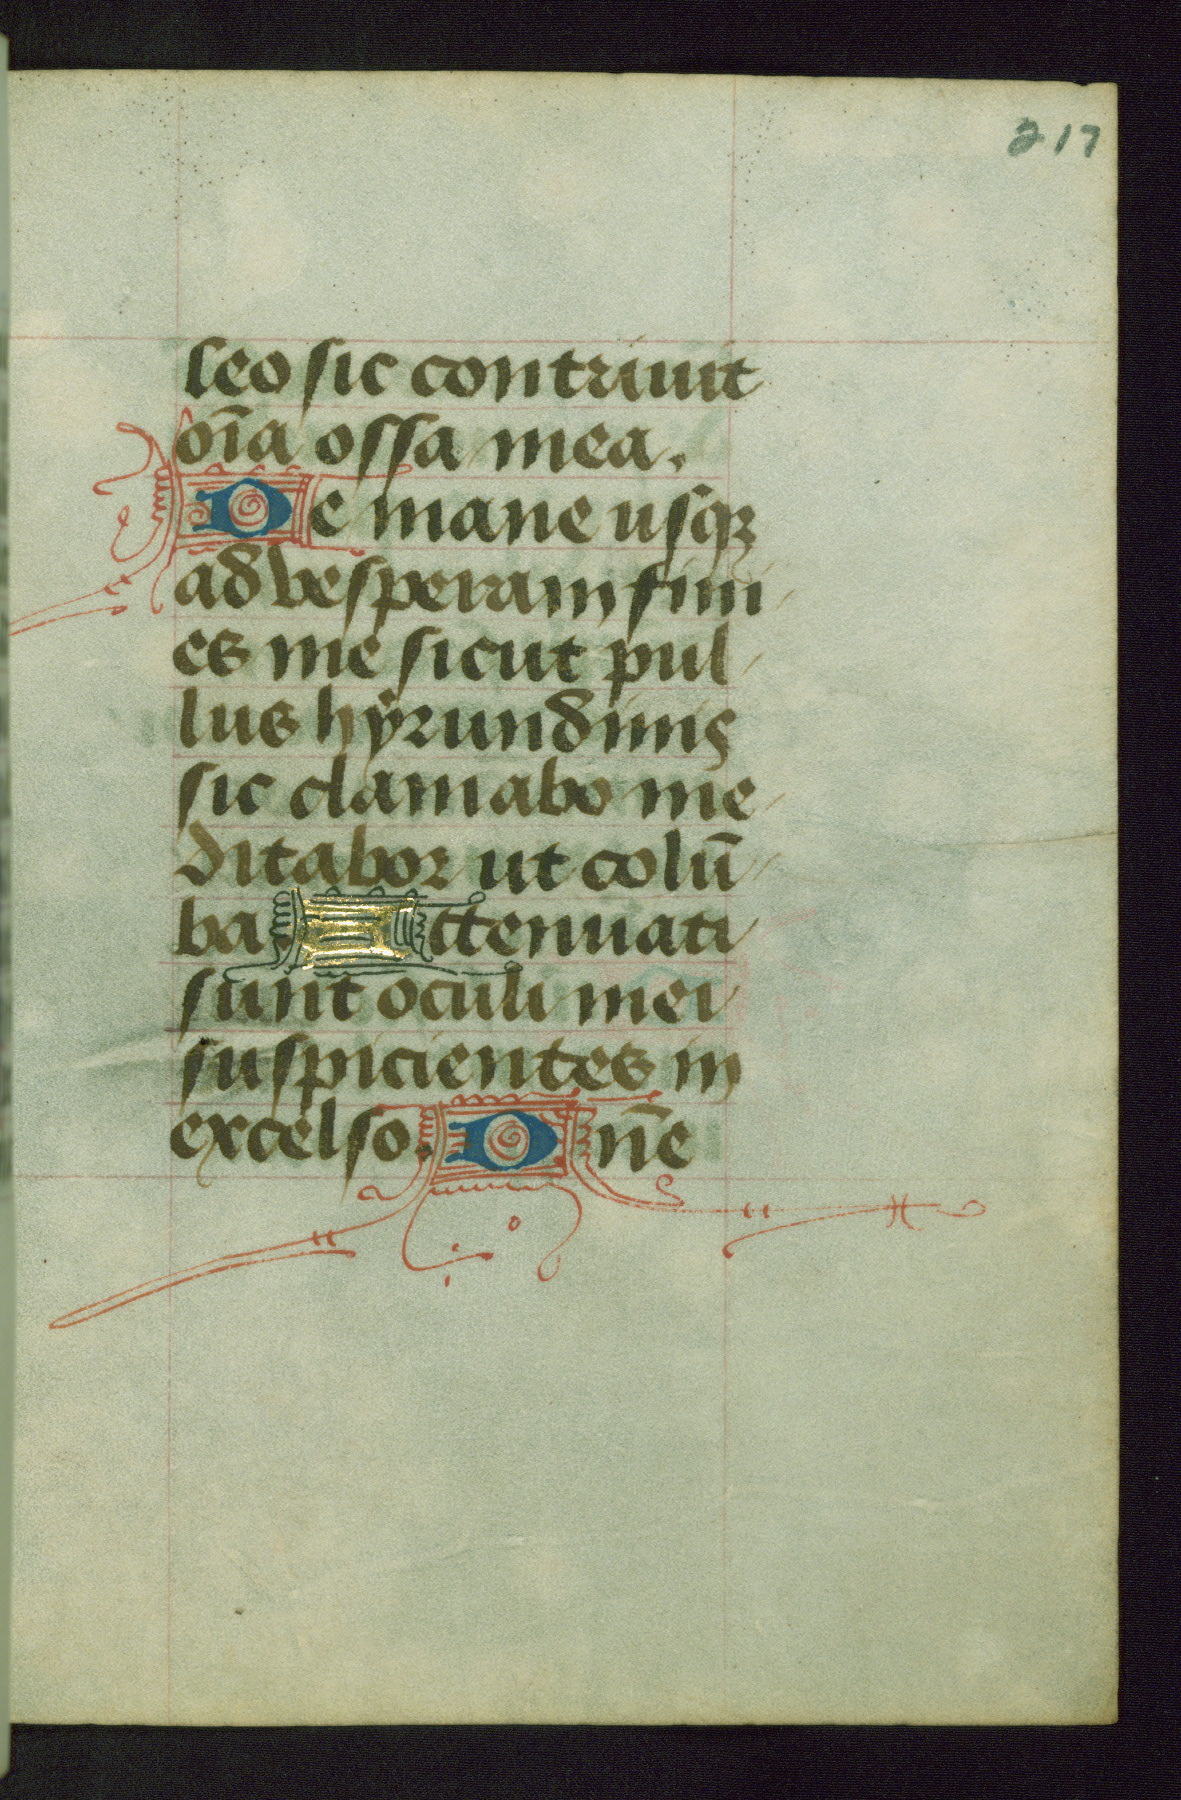 217
leo sic contriuit
oı̄a ossa mea.
De mane usq̄ꝫ
ad vesperam fini
es me sicut pul
lus hÿrundinis
sic clamabo me
ditabor ut colū
ba. Attenuati
sunt oculi mei
suspicientes in
excelso. Dn̄e